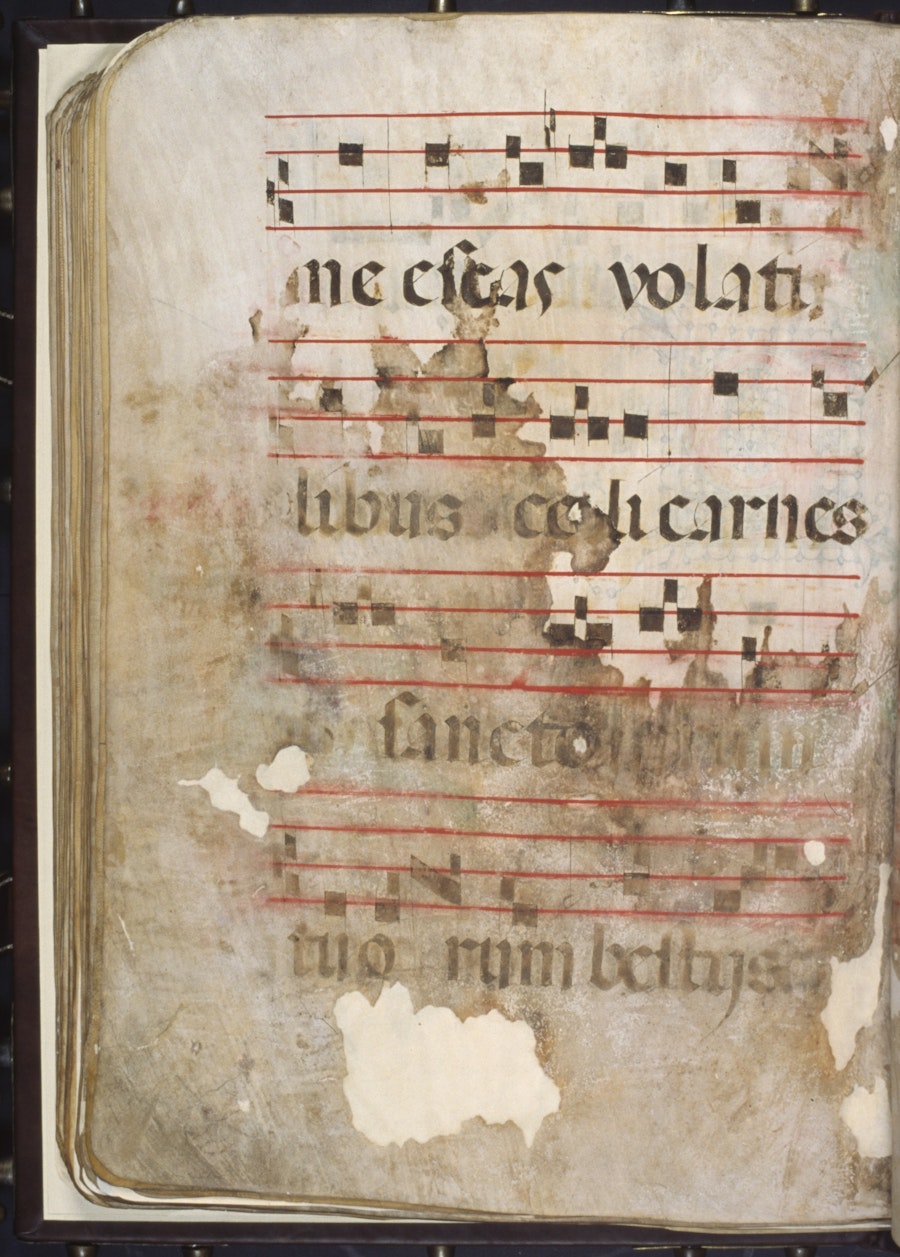 me escas volati
libus celi carnes
sancto
tuo rum bestijs